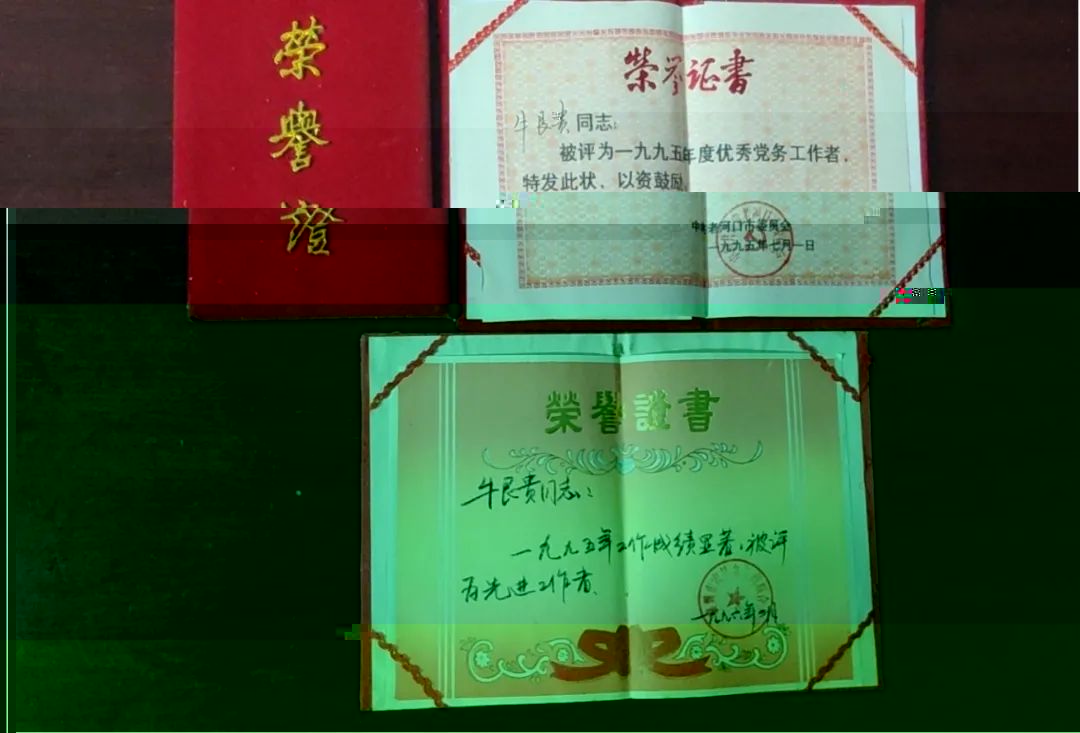 榮
譽
證
荣誉证书
牛良贵同志:
被评为一九九五年度优秀党务工作者,
特发此状,以资鼓励。
中共老河口市委员会
一九九五年七月一日
榮譽證書
牛良贵同志:
一九九五年工作成绩显著,被评
为先进工作者。
一九九六年二月